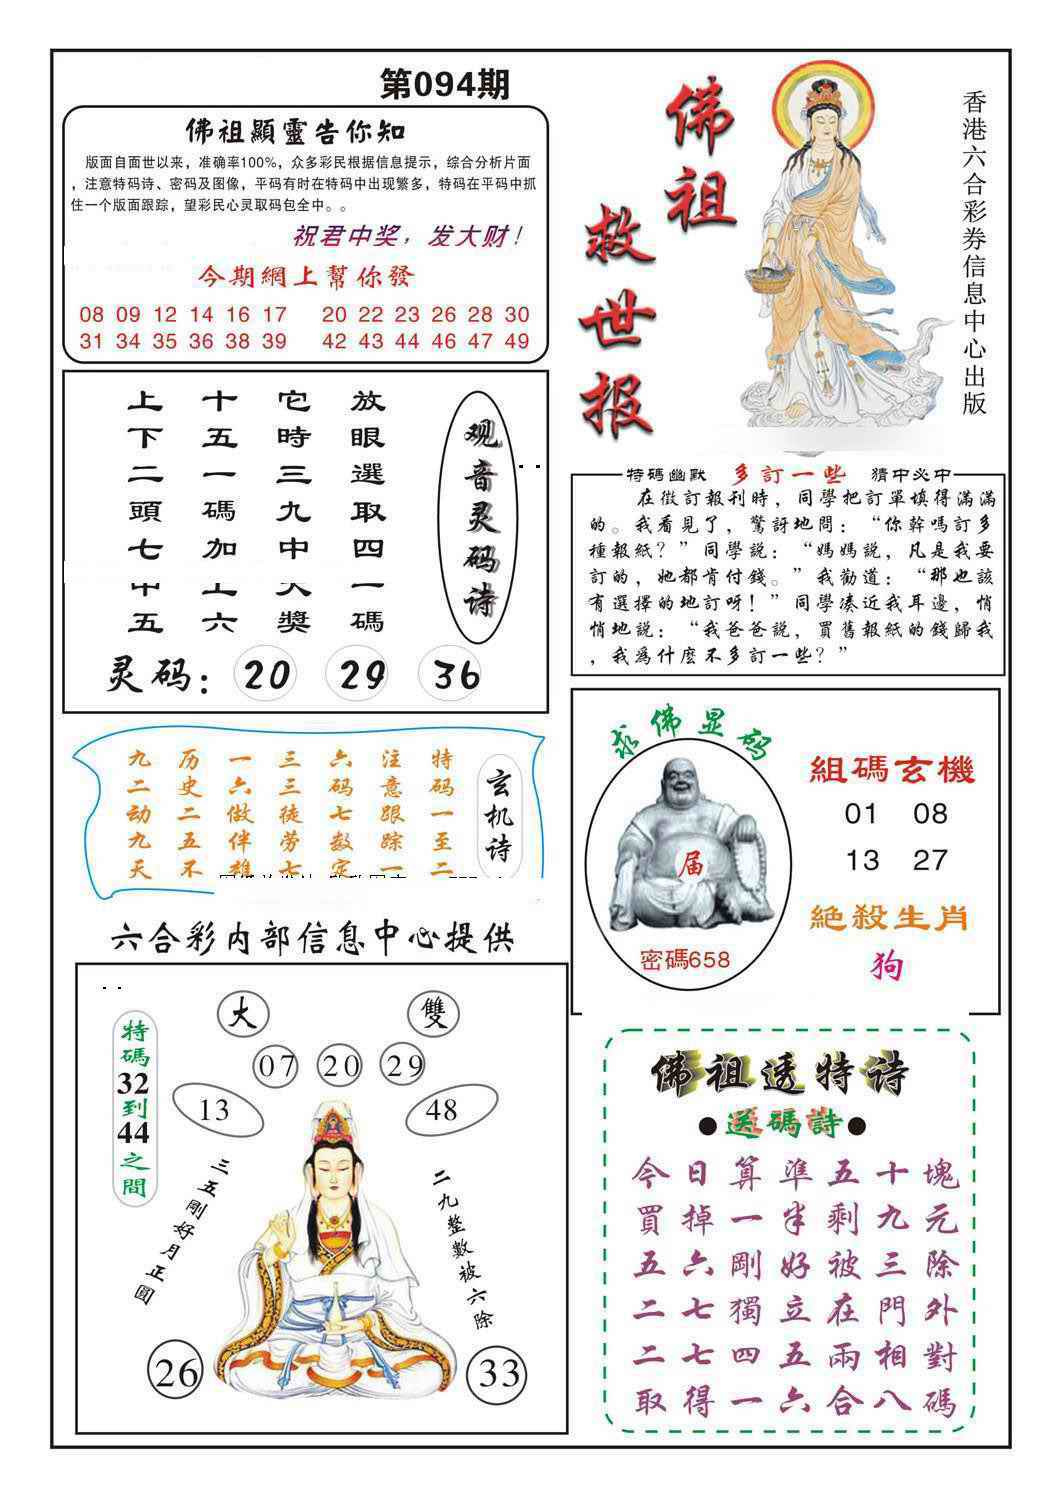 第094期
佛祖顯靈告你知
版面自面世以来，准确率100%，众多彩民根据信息提示，综合分析片面
，注意特码诗、密码及图像，平码有时在特码中出现繁多，特码在平码中抓
住一个版面跟踪，望彩民心灵取码包全中。。
祝君中奖，发大财！
今期網上幫你發
08 09 12 14 16 17 20 22 23 26 28 30
31 34 35 36 38 39 42 43 44 46 47 49
佛祖
救世报
香港六合彩券信息中心出版
观音灵码诗
放眼選取四一碼
它時三九中大獎
十五一碼加上六
上下二頭七中五
灵码：20 29 36
特碼幽默 多訂一些 猜中必中
在徵訂報刊時，同學把訂單填得滿滿
的。我看見了，驚訝地問：“你幹嗎訂多
種報紙？”同學説：“媽媽説，凡是我要
訂的，她都肯付錢。”我勸道：“那也該
有選擇的地訂呀！”同學凑近我耳邊，悄
悄地説：“我爸爸説，買舊報紙的錢歸我
，我爲什麽不多訂一些？”
玄机诗
特码一至二
注意跟踪一
六码七数定
三三徒劳七
一六做伴雄
历史二五不
九二动九天
求佛显码
届
密碼658
組碼玄機
01 08
13 27
絶殺生肖
狗
六合彩内部信息中心提供
大 雙
07 20 29
13 48
特碼32到44之間
三五剛好月正圓
二九整數被六除
26 33
佛祖透特诗
●送碼詩●
今日算準五十塊
買掉一半剩九元
五六剛好被三除
二七獨立在門外
二七四五兩相對
取得一六合八碼